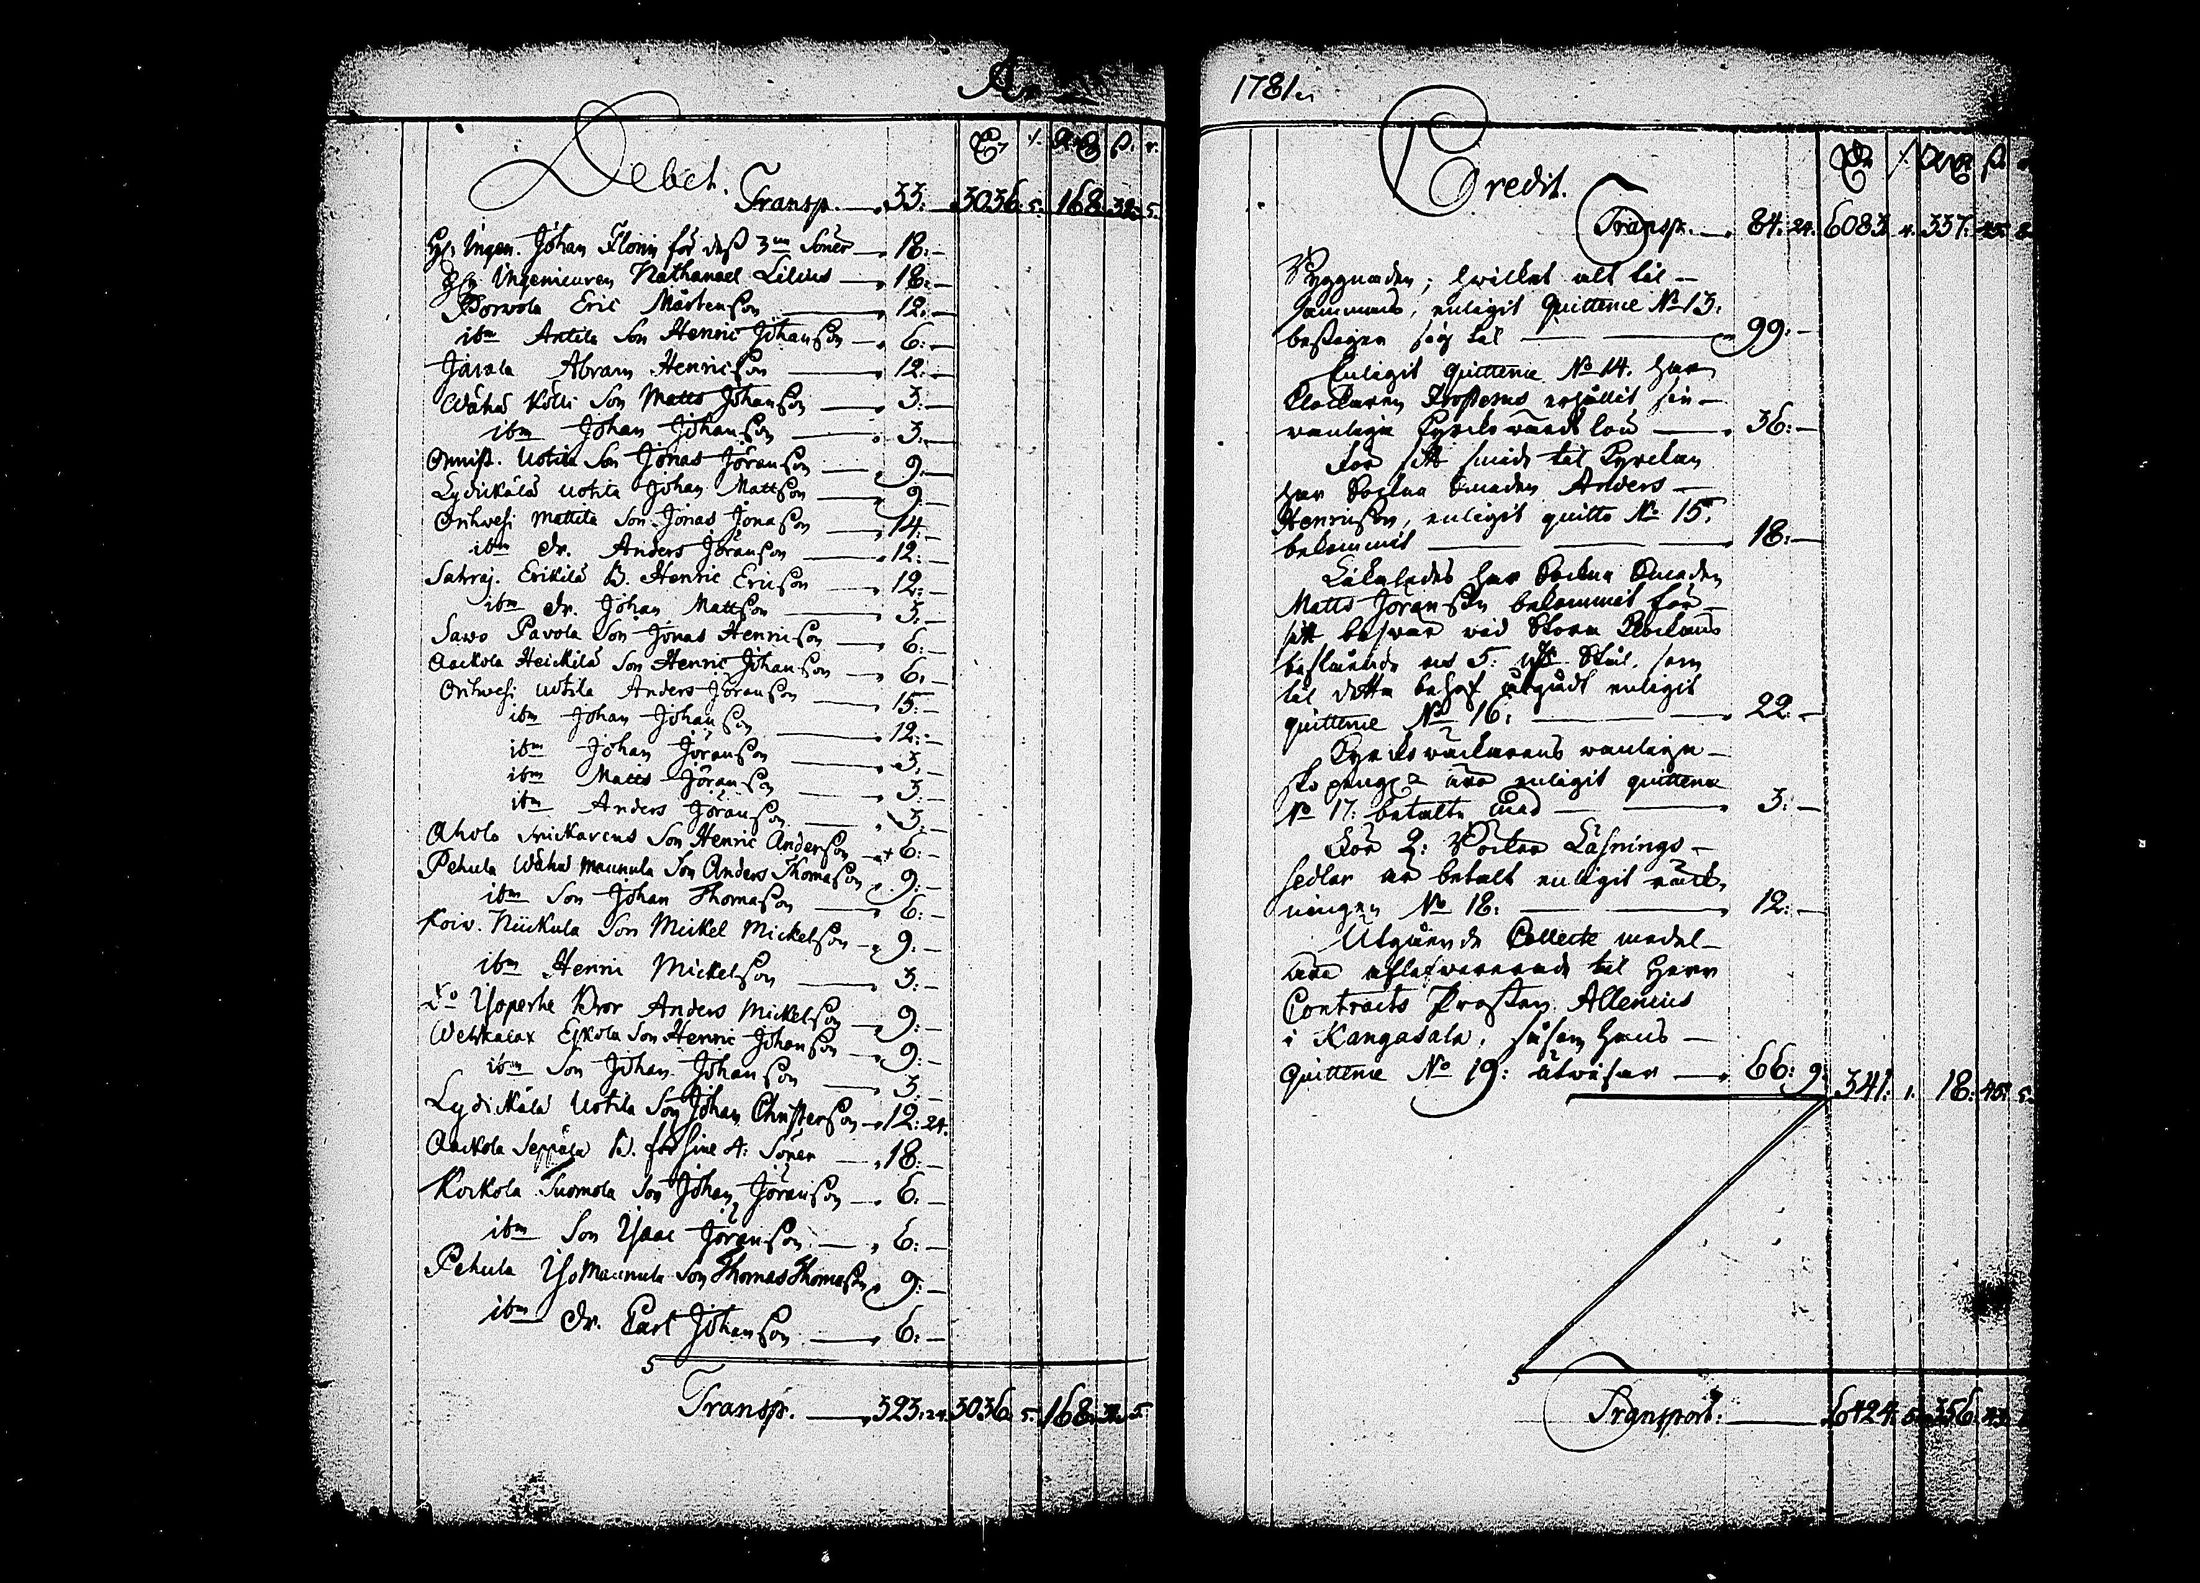 A:o
Debet.
Transp. — 33:— 3036. 5. 168. 32. 5.
Hr Ingen. Johan Florin för dess 3ne Söner — 18:—
Hr Ingenieuren Nathanael Lilius — 18:—
Porvola Eric Mårtensson — 12:—
ibm Antila Son Henric Johansson — 6:—
Javala Abram Henricsson — 12:—
Wähä Kölli Son Matts Johansson — 3:—
ibm Johan Johansson — 3:—
Onnist. Uotila Son Jonas Jöransson — 9:—
Lydickälä Uotila Johan Mattsson — 9—
Orihwesi Mattila Son Jonas Jonasson — 14.—
ibm Dr. Anders Jöransson — 12:—
Sahraj. Erikilä B. Henric Ericsson — 12:—
ibm Dr. Johan Mattsson — 3:—
Sawo Pavola Son Jonas Henricsson — 6:—
Aackola Heickilä Son Henric Johansson — 6:—
Orihwesi Uotila Anders Jöransson — 15:—
ibm Johan Johansson — 12:—
ibm Johan Jöransson — 3:—
ibm Matts Jöransson — 3:—
ibm Anders Jöransson — 3:—
Ahola Snickareus Son Henric Andersson — 6:—
Pehula Wähä Maunula Son Anders Thomasson 9:—
ibm Son Johan Thomasson — 6:—
Koiv. Niickula Son Mickel Mickelsson — 9:—
ibm Henric Mickelsson — 3:—
Do Ysoperhe Bror Anders Mickelsson — 9:—
Wehkalax Eskola Son Henric Johansson — 9:—
ibm Son Johan Johansson — 3.—
Lydickälä Uotila Son Johan Christersson — 12:24.
Aackola Seppälä B. för sine 4: Söner — 18:—
Korkola Tuomola Son Johan Jöransson — 6:—
ibm Son Ysaac Jöransson — 6:—
Pehula Yso Maunula Son Thomas Thomasson 9:—
ibm Dr. Carl Johansson — 6:—
Transp. — 323:24. 3036. 5. 168. 32. 5.
1781
Credit.
Transp. — 84. 24. 6083. 4. 337.
Byggnaden; hwilket alt til-
sammans, enligit Quittence No 13:
bestiger sig til — 99:—
Enligit quittence No 14. har
Klockaren Trosterus erhållit sin
wanliga Kyrckowards lön — 36:—
För sitt smide til Kyrckan
har Sockne Smeden Anders
Henricsson, enligit quitto No 15.
bekommit — 18:—
Likaledes har Sockne Smeden
Matts Jöransson bekommit för
sitt beswär wid Stora Klockans
Stål. som
til detta behof utgådt enligit
quittence No 16: — 22:—
Kyrckowäckarens wanliga
sko pengar äro enligit quittence
No 17: betalte med — 3:—
För 2: Böcker Läsnings-
sedlar är betalt enligit räck-
ningen No 18: — 12:—
Utgående Collecte medel
äro aflefwererade til Herr
Contracts Prosten Allenius
i Kangasala, såsom hans
Quittence No 19: utwisar — 66: 9: 341: 1. 18:
Transport: — 6424. 5. 356.